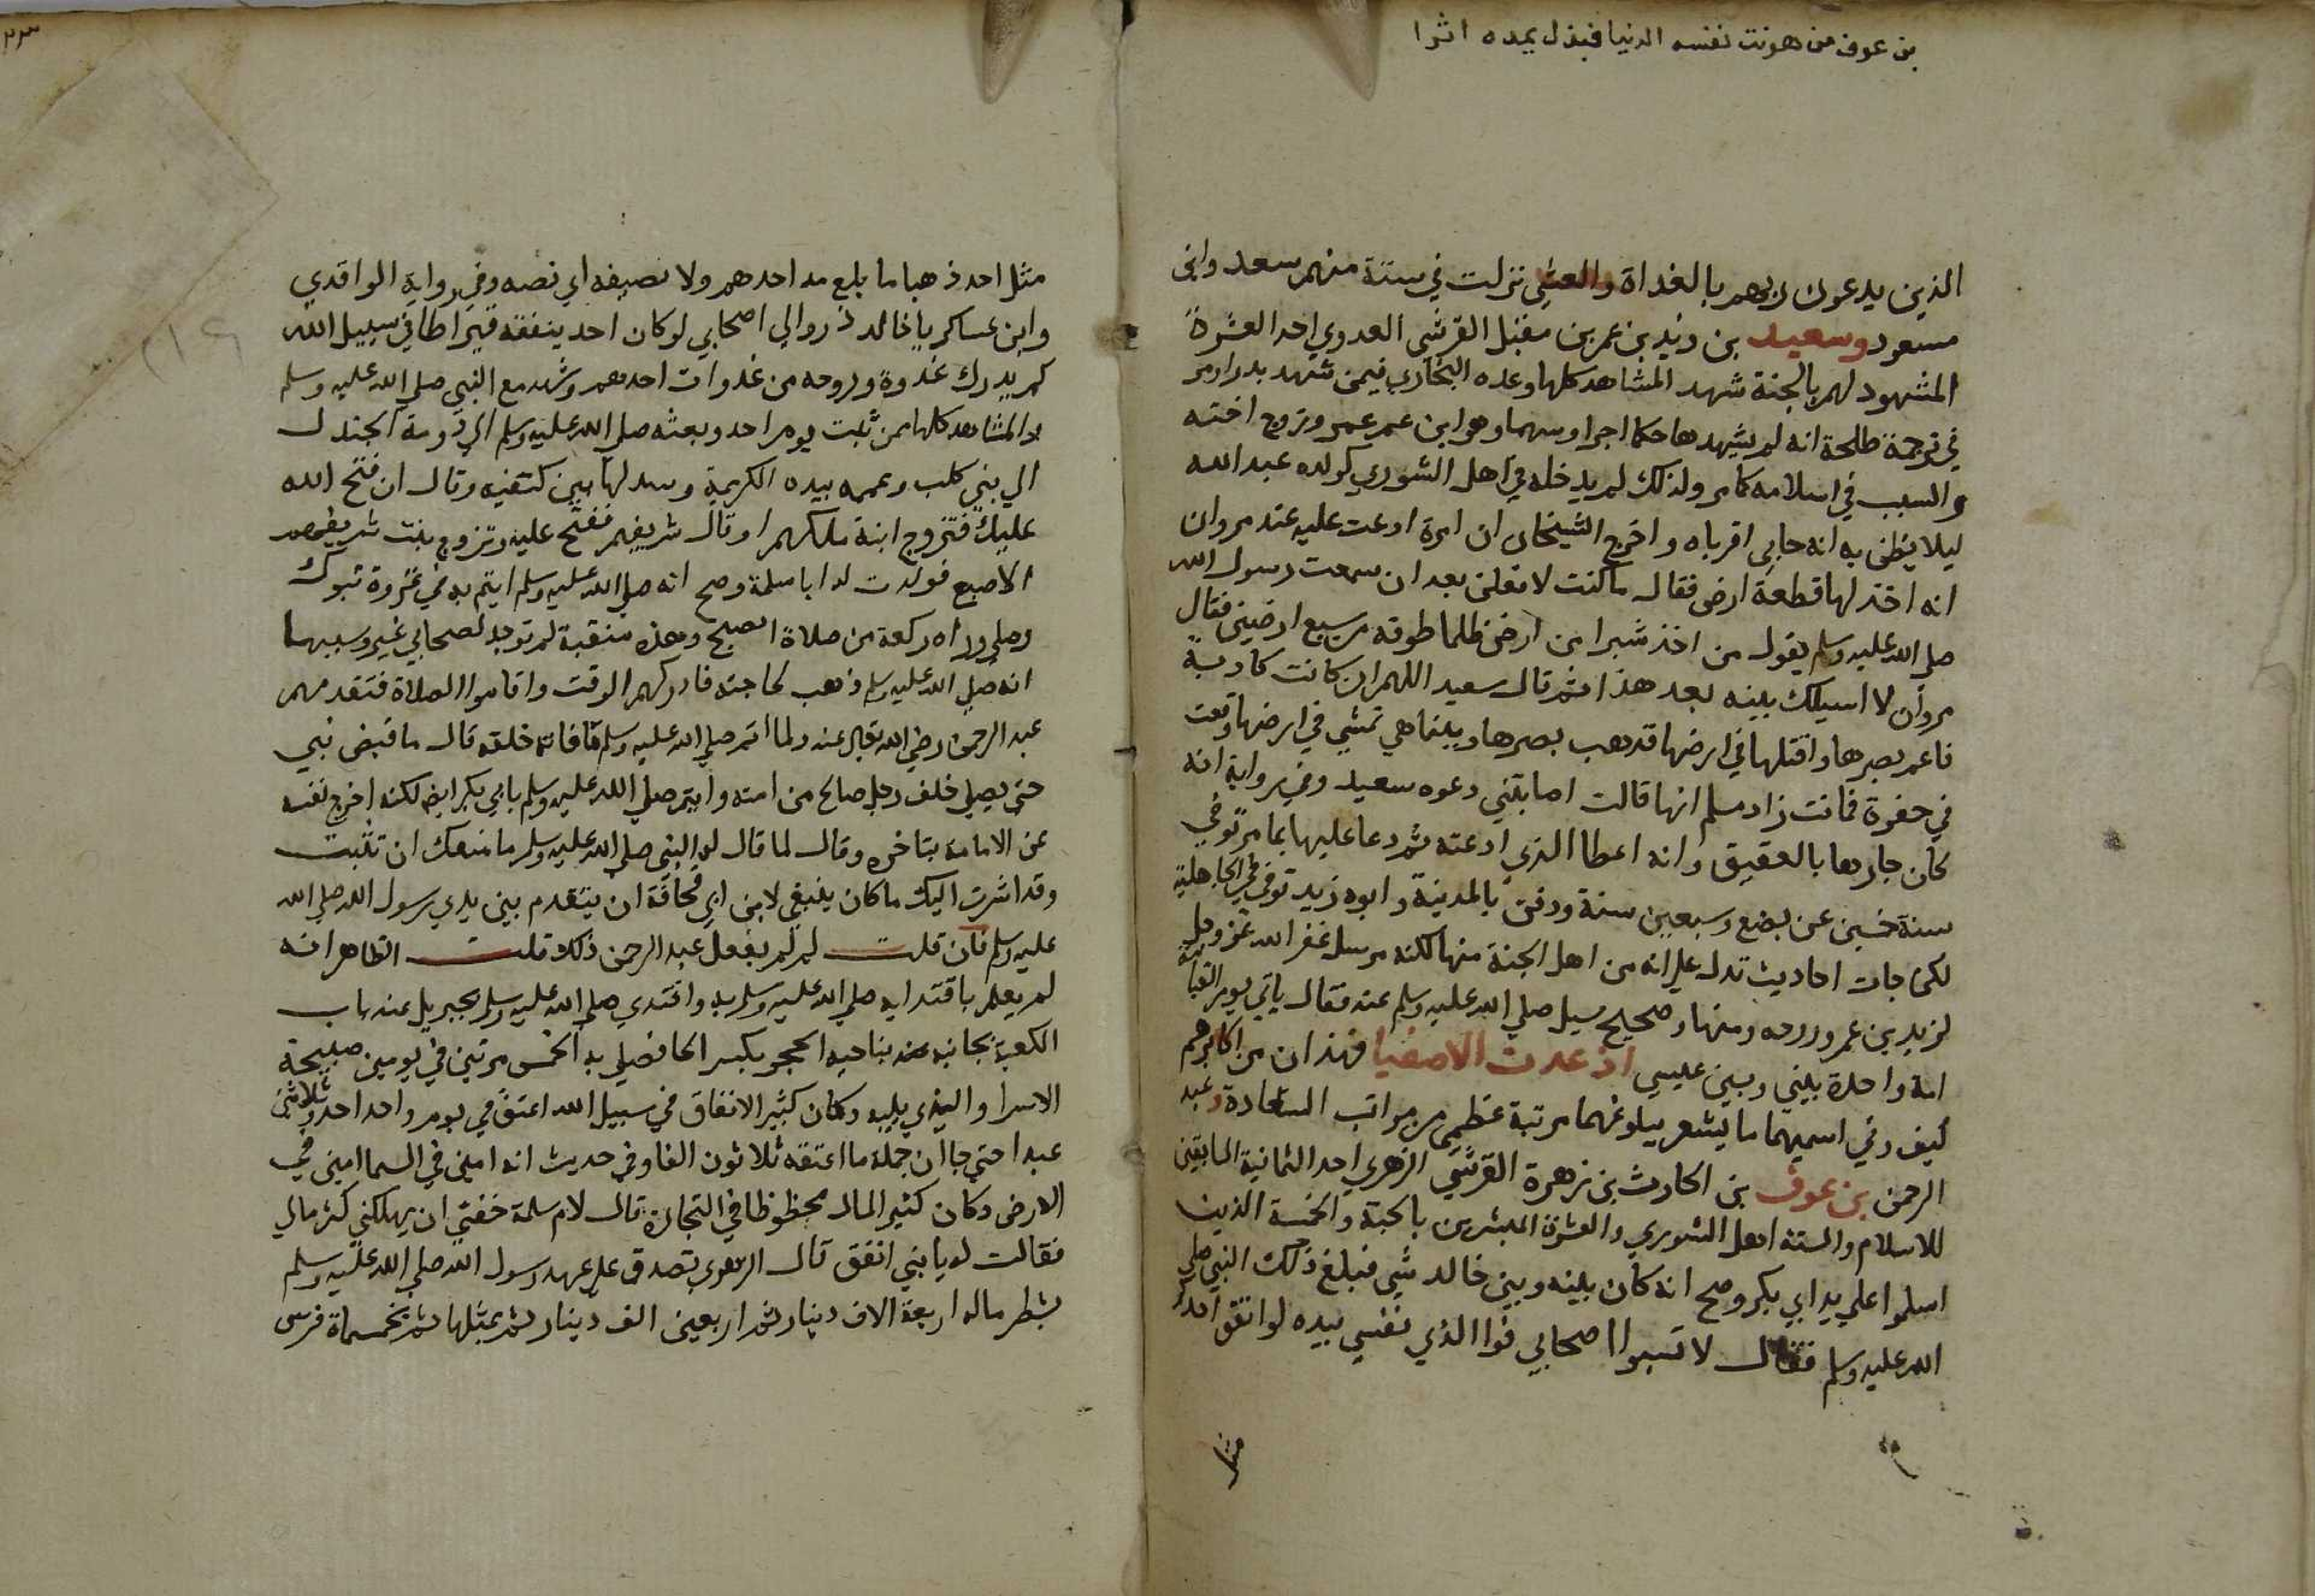 بن عوف من هونت نفسه الدنيا فبذل يمده اثرا
الذين يدعون ربهم بالغداة والعشي نزلت في ستة منهم سعد وابن
مسعود وسعيد بن زيد بن عمر بن مفنل القرشي العدوي احد العشرة
المشهود لهم بالجنة شهد المشاهد كلها وعده البخاري فيمن شهد بدرا ومر
في ترجمة طلحة انه لم يشهدها حكما اجرا وسهما وهو ابن عم عمر وتزوج اخته
والسبب في اسلامه كما مر ولذلك لم يدخله في اهل الشوري كولده عبد الله
ليلا يظن به انه حابي اقرباه واخرج الشيخان ان امرة ادعت عليه عند مروان
انه اخذ لها قطعة ارض فقال ما كنت لافعلن بعد ان سمعت رسول الله
صلي الله عليه وسلم يقول من اخذ شبرا من ارض ظلما طوقه من سبع ارضين فقال
مروان لا اسيلك بينه بعد هذا ثم قال سعيد اللهم ان كانت كاذبة
فاعم بصرها واقتلها في ارضها فذهب بصرها وبينما هي تمشي في ارضها وقعت
في حفرة فماتت زاد مسلم انها قالت اصابتني دعوه سعيد وفي رواية انه
كان جارها بالعقيق وانه اعطا الذي ادعته ثم دعا عليها بما مر توفي
سنة خمسين عن بضع وسبعين سنة ودفن بالمدينة وابوه زيد توفي في الجاهلية
لكن جات احاديث تدل علي انه من اهل الجنة منها لكنه مرسل غفر الله عز وجل
لزيد بن عمر ورحمه ومنها وصحيح سيل صلي الله عليه وسلم عنه فقال ياتي يوم القيامة
امة واحدة بيني وبين عيسي اذ عدت الاصفيا فهذان من اكابرهم
كيف وفي اسميهما ما يشعر ببلوغهما مرتبة عظمي من مراتب السعادة وعبد
الرحمن بن عوف بن الحارث بن زهرة القرشي الزهري احد الثمانية السابقين
للاسلام والستة اهل الشوري والعشرة المبشرين بالجنة والخمسة الذين
اسلموا علي يد ابي بكر وصح انه كان بينه وبين خالد شي فبلغ ذلك النبي صلي
الله عليه وسلم فقال لا تسبوا اصحابي فوا الذي نفسي بيده لو انفق احدكم
مثل
مثل احد ذهبا ما بلغ مد احدهم ولا نصيفه اي نصفه وفي رواية الواقدي
وابن عساكر يا خالد ذروا لي اصحابي لو كان احد ينفقه قيراطا في سبيل الله
لم يدرك غدوة وروحه من غدوات احدهم وشهد مع النبي صلي الله عليه وسلم
المشاهد كلها ممن ثبت يوم احد وبعثه صلي الله عليه وسلم الي دومة الجندل
الي بني كلب وعممه بيده الكريمة وسدلها بين كتفيه وقال ان فتح الله
عليك فتزوج ابنة ملكهم او قال شريفهم ففتح عليه وتزوج بنت شريفهم
الاصبع فولدت له ابا سلمة وصح انه صلي الله عليه وسلم ايتم به في غزوة تبوك
وصلي وراه ركعة من صلاة الصبح وهذه منقبة لم توجد لصحابي غيره وسببها
انه صلي الله عليه وسلم ذهب لحاجته فادركهم الوقت واقاموا الصلاة فتقدمهم
عبد الرحمن رضي الله تعالي عنه ولما اتم صلي الله عليه وسلم ما فاته خلفه قال ما قبض نبي
حتي يصلي خلف رجل صالح من امته وايتم صلي الله عليه وسلم بابي بكر ايضا لكنه اخرج نفسه
عن الامامة بتاخره وقال لما قال له النبي صلي الله عليه وسلم ما منعك ان تثبت
وقد اشرت اليك ما كان ينبغي لابن ابي قحافة ان يتقدم بين يدي رسول الله صلي الله
عليه وسلم فان قلت لم لم يفعل عبد الرحمن ذلك قلت الظاهر انه
لم يعلم باقتدايه صلي الله عليه وسلم به واقتدي صلي الله عليه وسلم بجبريل عند باب
الكعبة بجانبه عند بناحيه الحجر بكسر الحا فصلي به الخمس مرتين في يومين صبيحة
الاسرا والذي يليه وكان كثير الانفاق في سبيل الله اعتق في يوم واحد احد وثلاثين
عبدا حتي جا ان جملة ما اعتقه ثلاثون الفا وفي حديث انه امين في السما امين في
الارض وكان كثير المال محظوظا في التجارة قال لام سلمة خفت ان يهلكني كثر مالي
فقالت له يا بني انفق قال الزهري تصدق علي عهد رسول الله صلي الله عليه وسلم
بشطر ماله اربعة الاف دينار ثم اربعين الف دينار ثم بمثلها ثم بخمسماة فرس